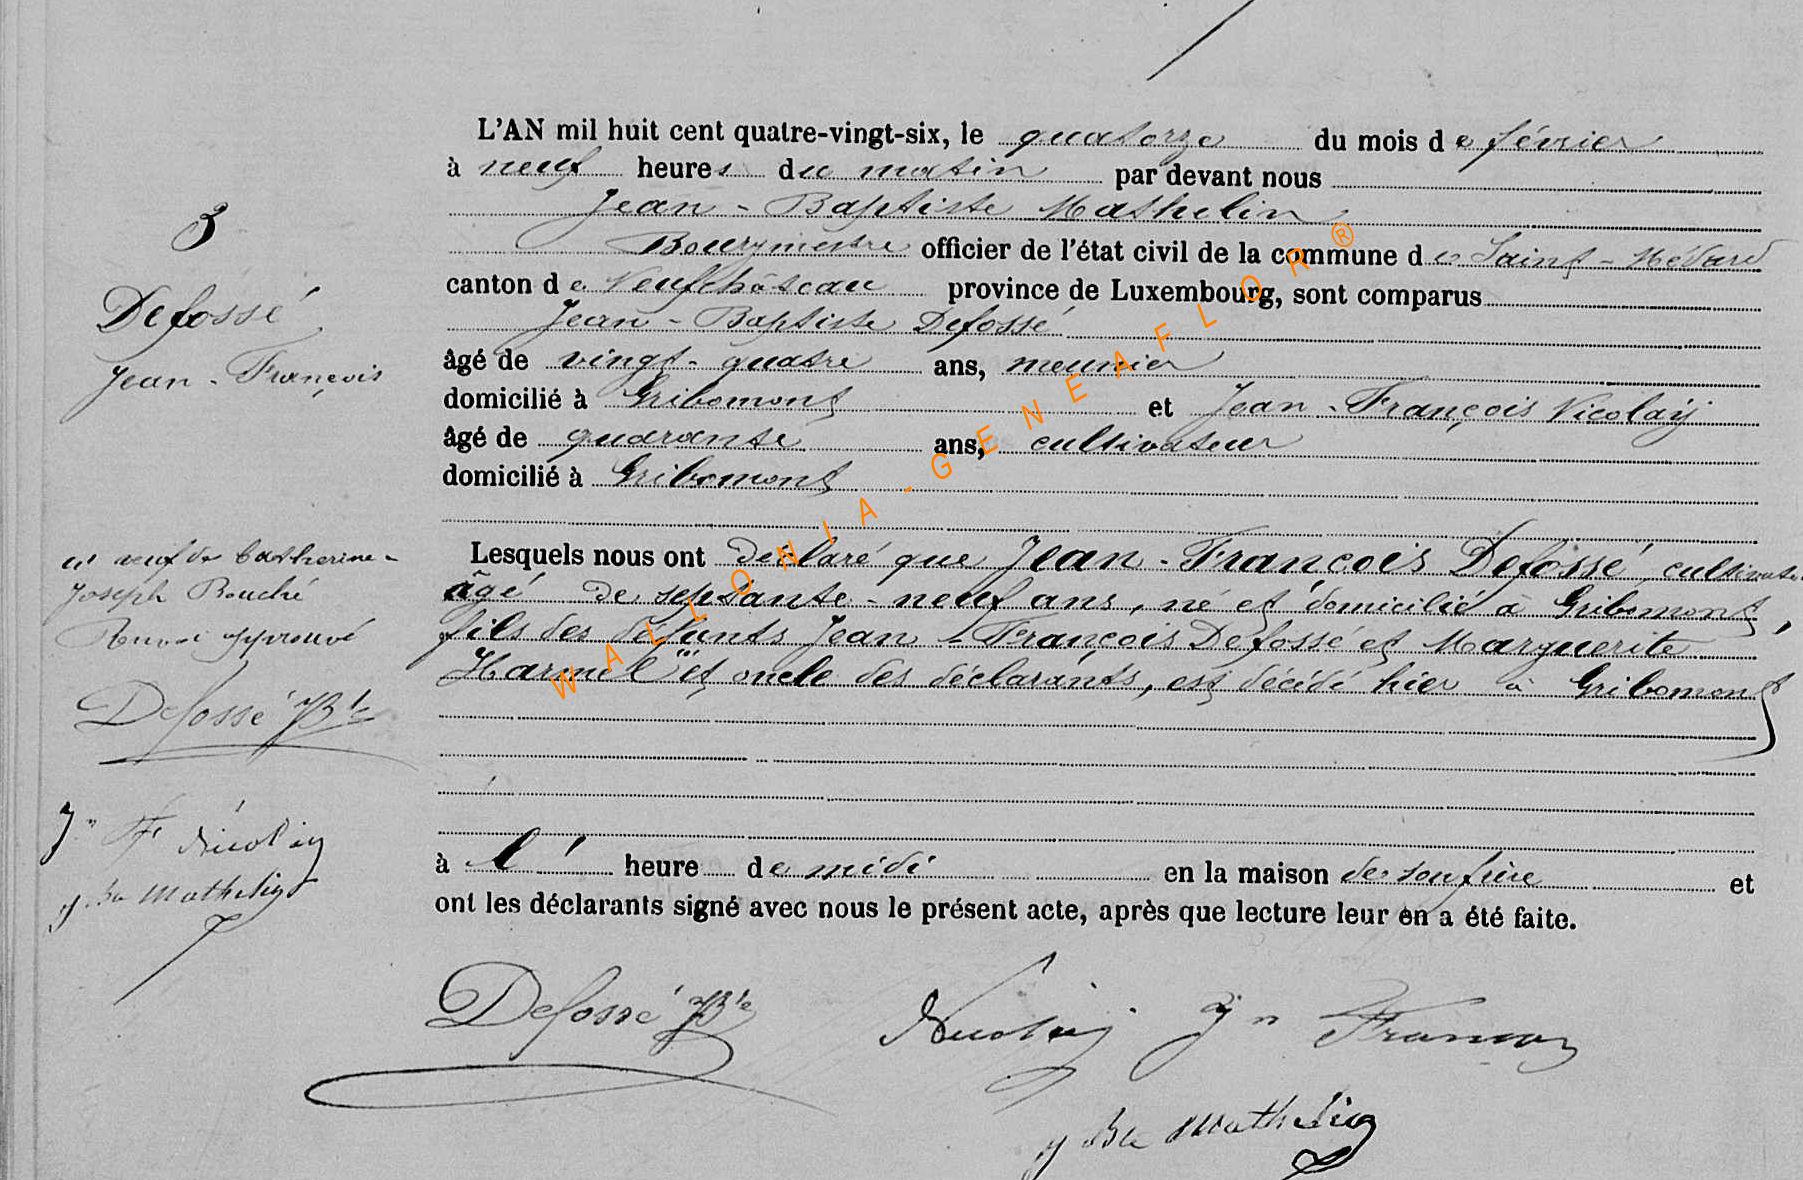 L'AN mil huit cent quatre-vingt-six, le quatorze du mois de février
à neuf heures du matin par devant nous
Jean-Baptiste Mathelin
Bourgmestre officier de l'état civil de la commune de Saint-Médard
canton de Neufchâteau province de Luxembourg, sont comparus
Jean-Baptiste Defossé
âgé de vingt-quatre ans, meunier
domicilié à Gribomont et Jean-François Nicolaÿ
âgé de quarante ans, cultivateur
domicilié à Gribomont
Lesquels nous ont déclaré que Jean-François Defossé, cultivateur
âgé de septante-neuf ans, né et domicilié à Gribomont,
fils des défunts Jean-François Defossé et Marguerite
Harmel et oncle des déclarants, est décédé hier à Gribomont
à l' heure de midi en la maison de son frère et
ont les déclarants signé avec nous le présent acte, après que lecture leur en a été faite.
Defossé JBte
Nicolaÿ Jn François
JBte Mathelin
3
Defossé
Jean-François
veuf de Catherine-
Joseph Bouché
Renvoi approuvé
Defossé JBte
Jn Fs Nicolaÿ
JBte Mathelin
WALLONIA-GENEAFLOR®